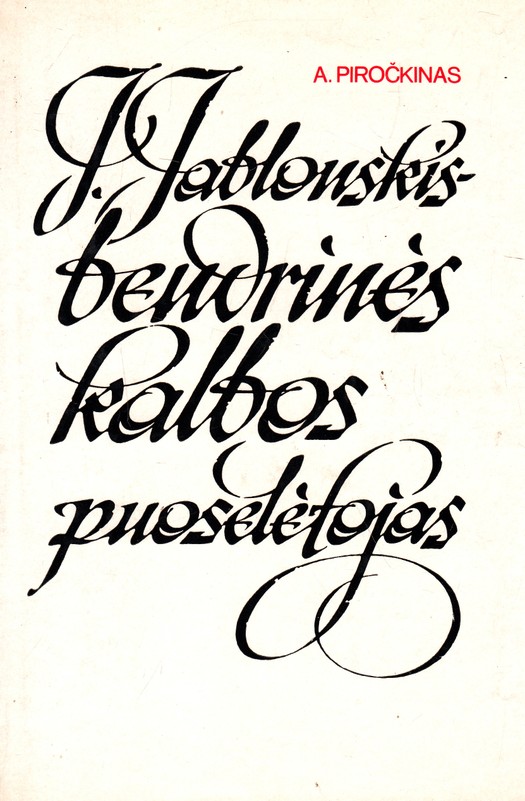 A. PIROČKINAS
J. Jablonskis-
bendrinės
kalbos
puoselėtojas